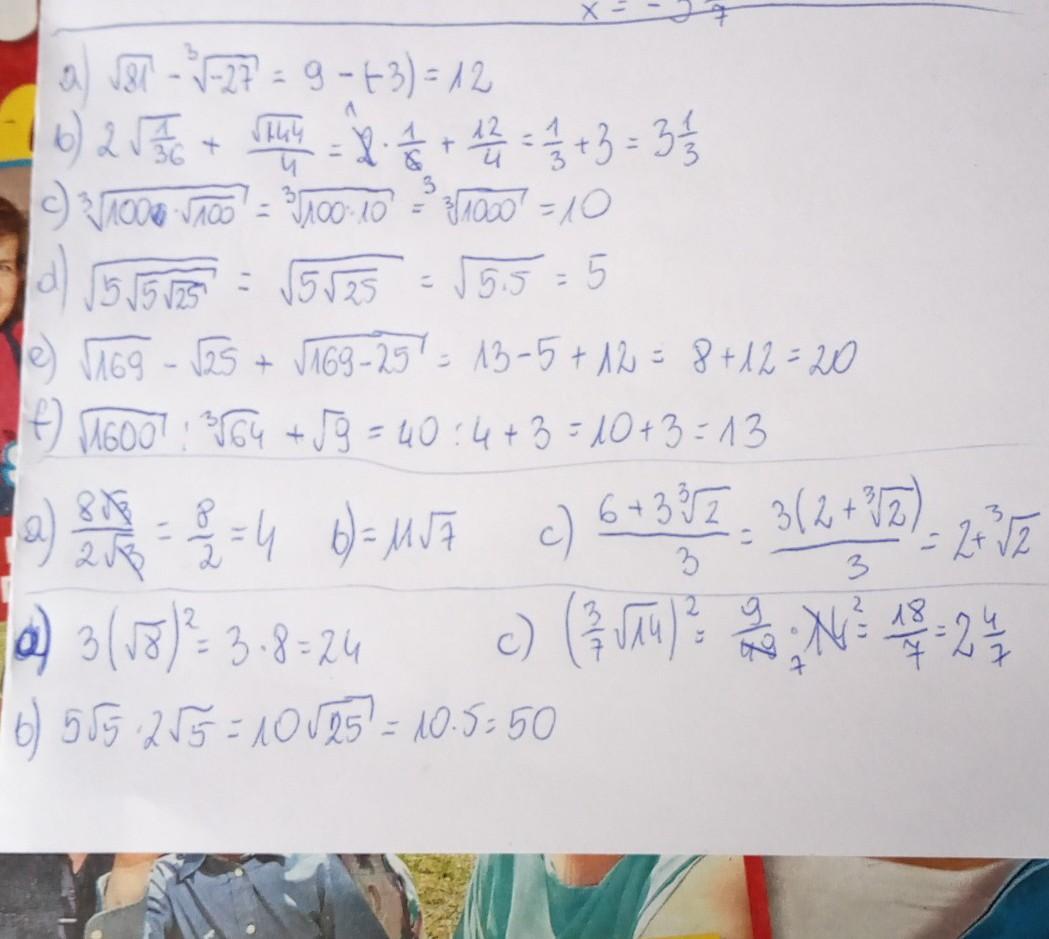 x = - 
a) √81 - ³√-27 = 9 - (-3) = 12
b) 2√(1/36) + √144/4 = 2 · 1/6 + 12/4 = 1/3 + 3 = 3 1/3
c) ³√(100 · √100) = ³√(100·10) = ³√1000 = 10
d) √(5√(5√25)) = √(5√25) = √(5·5) = 5
e) √169 - √25 + √(169-25) = 13 - 5 + 12 = 8 + 12 = 20
f) √1600 : ³√64 + √9 = 40 : 4 + 3 = 10 + 3 = 13
a) 8√3/2√3 = 8/2 = 4 b) = 11√7 c) (6 + 3³√2)/3 = 3(2 + ³√2)/3 = 2 + ³√2
a) 3(√8)² = 3 · 8 = 24 c) (3/7 √14)² = 9/49 · 14 = 18/7 = 2 4/7
b) 5√5 · 2√5 = 10√25 = 10 · 5 = 50